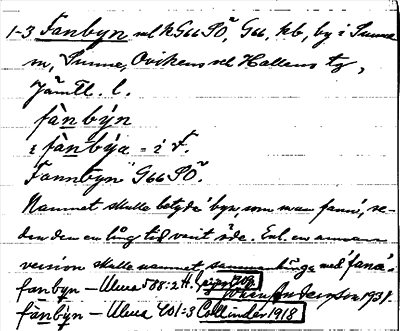 1-3 Fanbyn vel k G66 PÖ, G66, kb, by i Sunne
sn, Sunne, Ovikens vel Hallens tg,
Jämtl. l.
fànbýn
i fànbýa = i F.
Fannbyn G66 PÖ.
Namnet skulle betyda byn, som man fann, se-
dan den en lång tid varit öde. Enl. en annan
version skulle namnet sammanhänga med fana:
fanbyn – Ulma 588:2 H. Geijer 1909
Andersson 1931.
fànbýn – Ulma 401:3 Collinder 1918